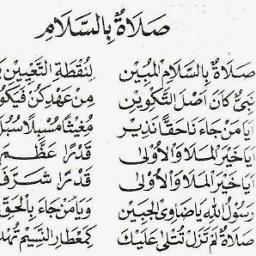 صَلَاةٌ بِالسَّلَامِ
صَلَاةٌ بِالسَّلَامِ الْمُبِينْ لِنُقْطَةِ التَّعْيِينْ
نَبِيٌّ كَانَ اَصْلَ التَّكْوِينْ مِنْ عَهْدِ كُنْ فَيَكُو
اَيَا مَنْ جَاءَنَا حَقًّا نَذِيرْ مُغِيثًا مُسْبِلًا سُبُلَ
اَيَا خَيْرَ الْمَلَا وَالْاُولٰى قَدْرًا عَظَّمَ
اَيَا خَيْرَ الْمَلَا وَالْاُولٰى قَدْرًا شَرَّفَ
رَسُولُ اللهِ يَا ضَاوِي الْجَبِينْ وَيَا مَنْ جَاءَ بِالْحَقِّ
صَلَاةٌ لَمْ تَزَلْ تُتْلٰى عَلَيْكَ كَمِعْطَارِ النَّسِيمْ تُهْدٰ